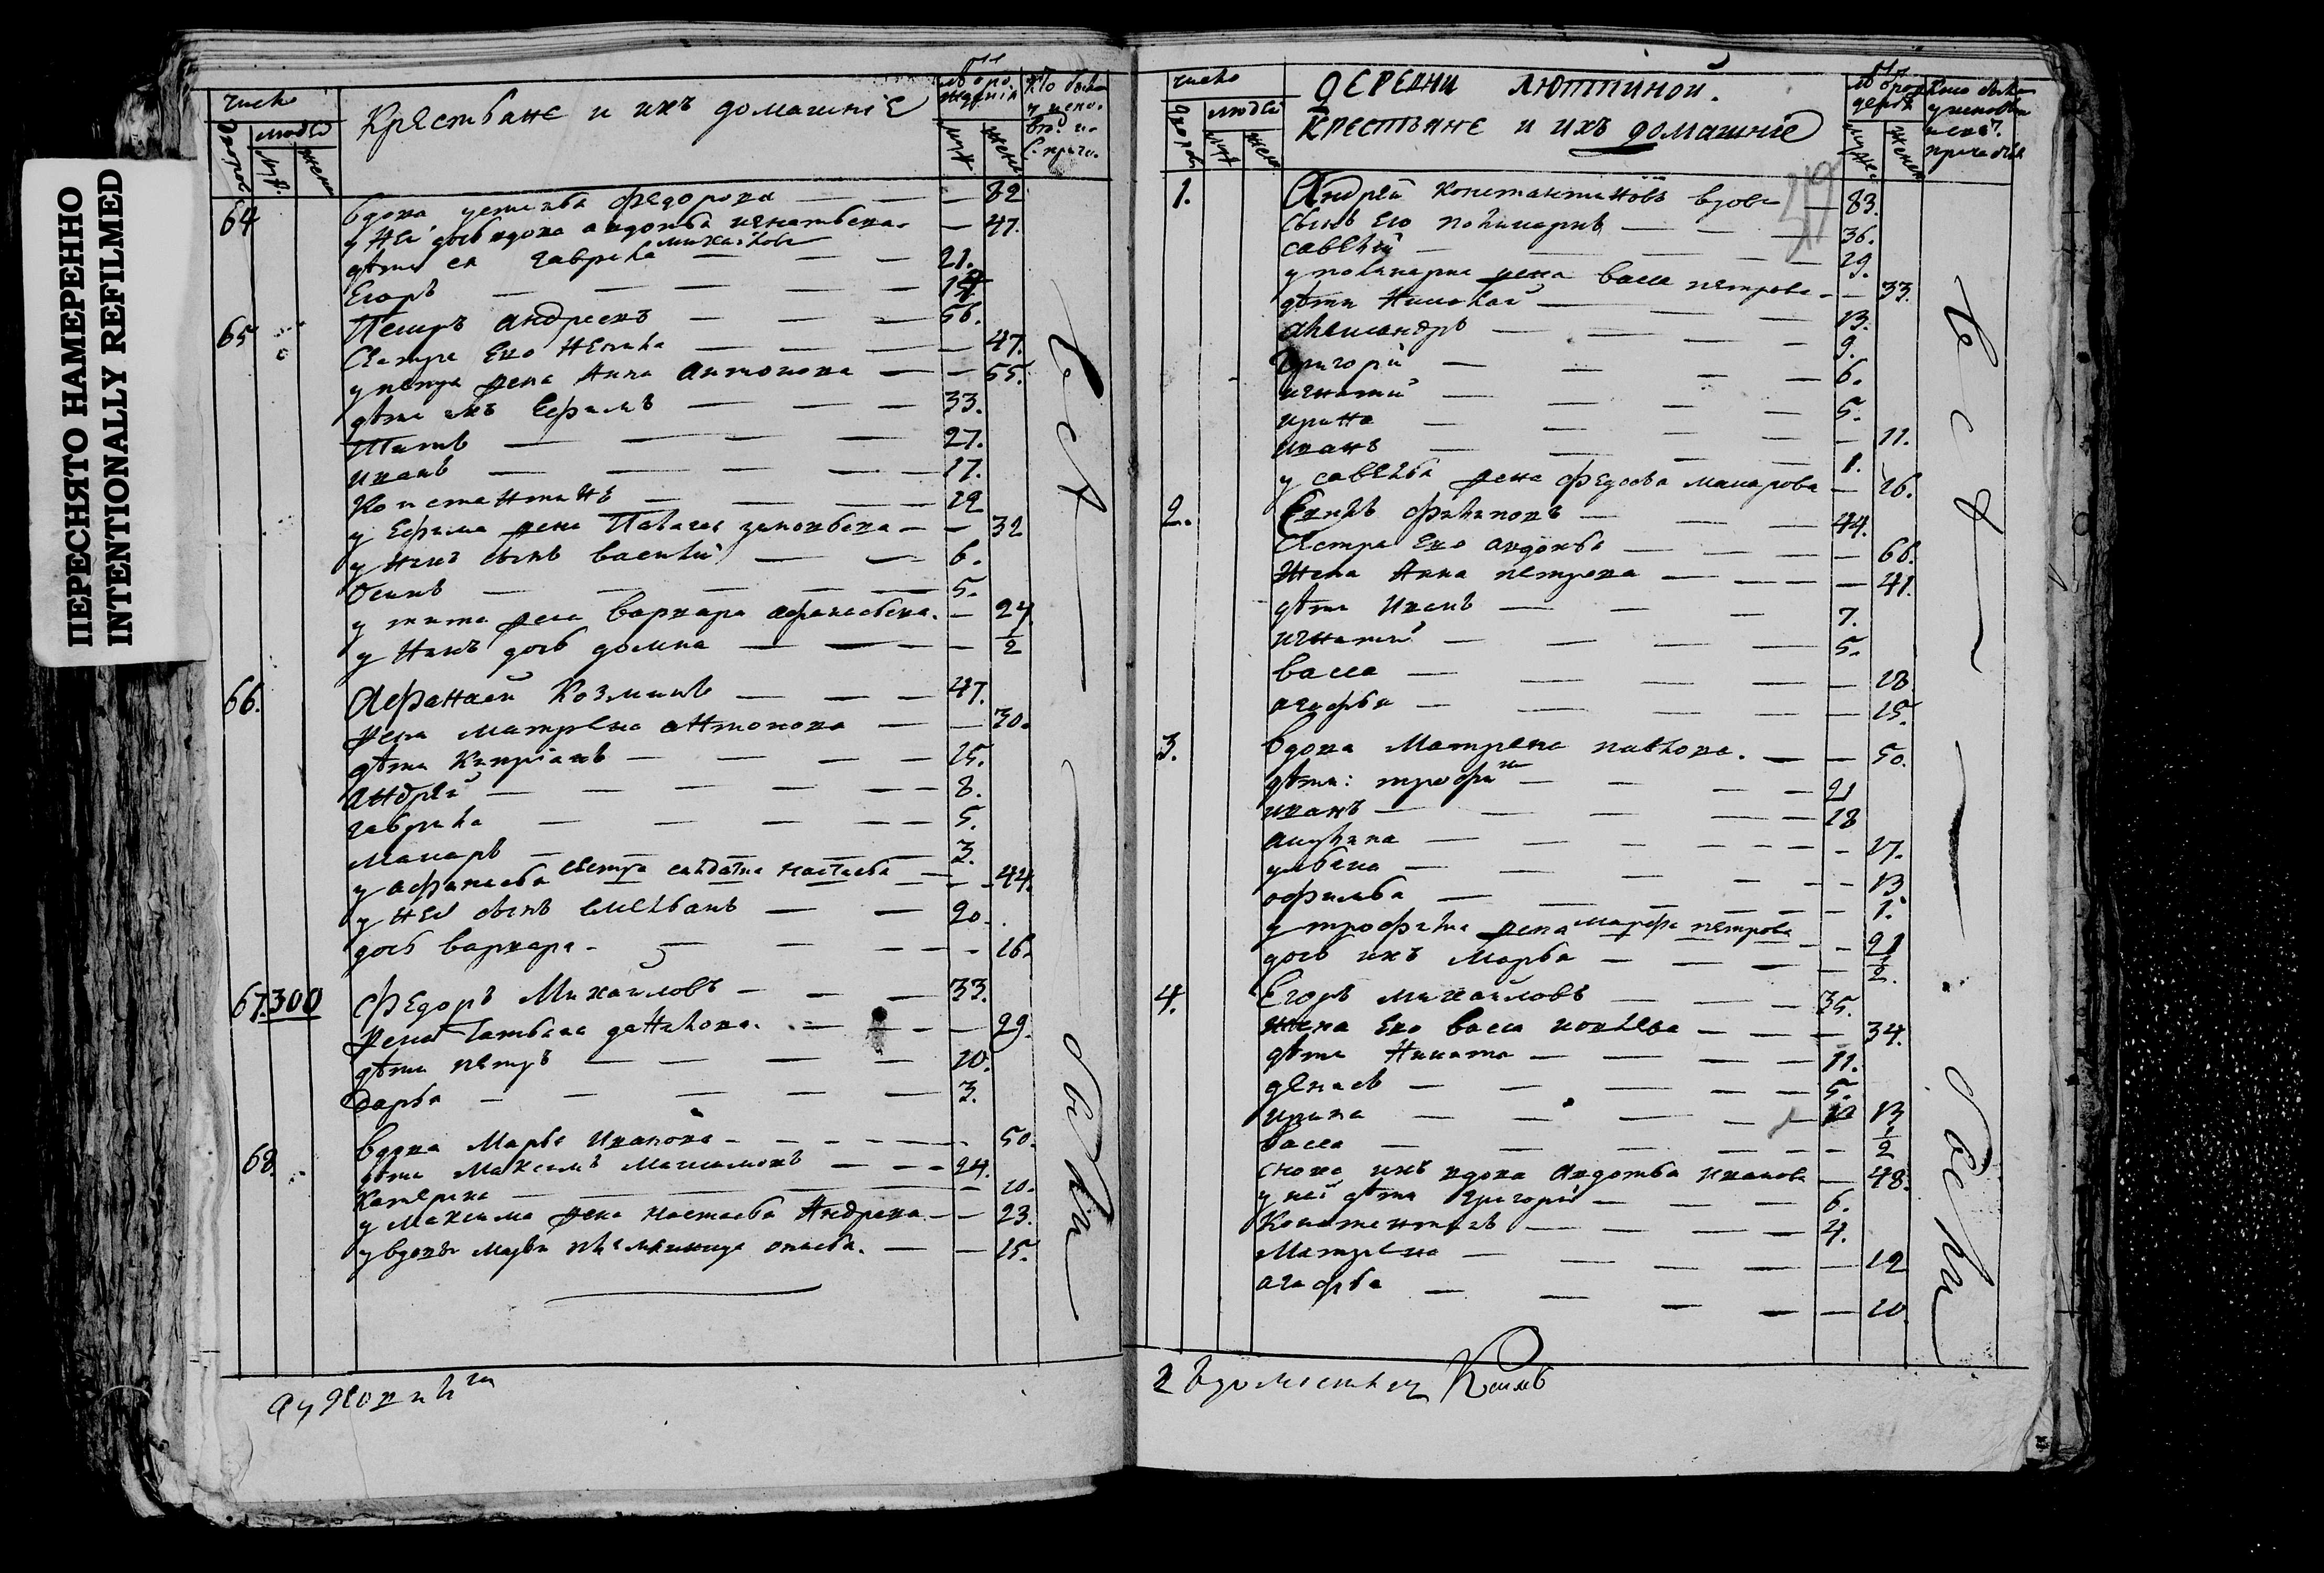 ПЕРЕСНЯТО НАМЕРЕННО
INTENTIONALLY REFILMED
число
людей
Крестьяне и ихъ домашніе
64 вдова устинья федорова — 82
у Неи дочь вдова авдотья игнатьева — 47.
дѣти ея гаврила михайлов 21.
Егоръ
65 Петръ андреевъ 56.
Сестра Его Ненила — 47.
у петра жена Анна антонова — 55.
дѣти ихъ Ефимъ 33.
Титъ 27.
иванъ 17.
Константинъ 12
у Ефима жена Палагея — 32
у нихъ сынъ василій 6.
Осипъ 5.
у тита жена варвара афанасьева — 24
у Нихъ дочь домна — 1/2
66. Афанасей Козминъ 47.
жена матрена антонова — 30.
дѣти Кипріанъ 15.
андрей 8.
гаврила 5.
макаръ 3.
у афанасья сестра салдатка настасья — 44.
у неи сынъ емельянъ 20.
дочь варвара — 16.
67. 300 федоръ Михайловъ 33.
жена Татьяна данилова — 29.
дѣти петръ 10.
Дарья 3.
68. вдова Марья Иванова — 50.
дѣти Максимъ 24.
Катерина — 10.
у Максима жена настасья Андреева — 23.
у вдовы марьи — 15.
всѣ
были
число
людей
деревни лютпиной.
крестьяне и ихъ домашніе
49
1. Андрей константиновъ вдовъ 83.
сынъ его поликарпъ 36.
савелій 29.
у поликарпа жена васса петрова — 33.
дѣти Николай 13.
александръ 9.
Григорій 6.
игнатий 5.
ирина — 11.
иванъ 1.
у савелья жена федосья макарова — 26.
2. филиповъ 44.
Сестра Его авдотья — 66.
жена Анна петрова — 41.
дѣти Иванъ 7.
игнатий 5.
васса — 18
агафья — 15.
3. вдова Матрена павлова. — 50.
дѣти: трофим 21
иванъ 18
акулина — 17.
ульяна — 13.
офимья — 1.
у трофима жена марфа петрова — 21
дочь ихъ марья — 1/2.
4. Егоръ михайловъ 35.
жена Его васса — 34.
дѣти Никита 11.
денисъ 5.
ирина 13
васса 1/2
сноха ихъ вдова Авдотья иванова — 48.
у неи дѣти григорій 6.
Константинъ 4.
матрена — 12
агафья — 10.
всѣ
были